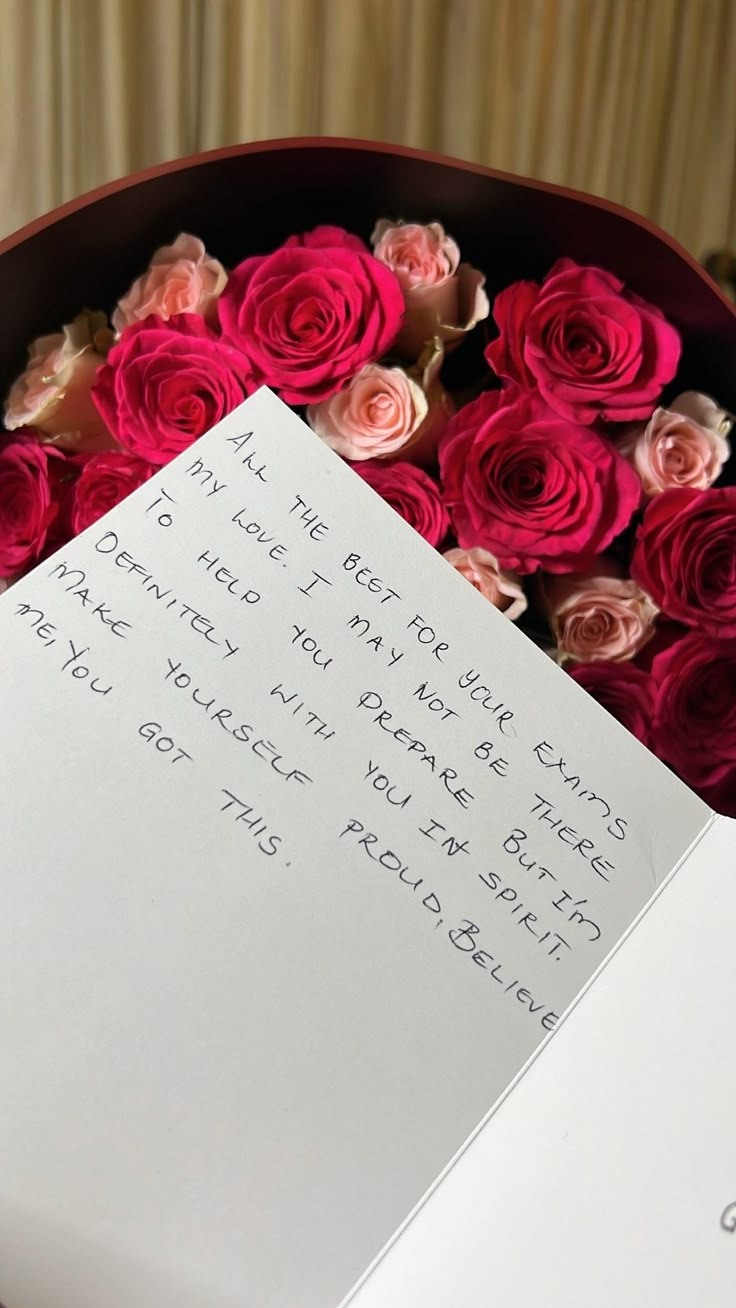 All THE BEST FOR YOUR EXAMS
MY LOVE. I MAY NOT BE THERE
TO HELP YOU PREPARE BUT I'M
DEFINITELY WITH YOU IN SPIRIT.
MAKE YOURSELF PROUD, BELIEVE
ME, YOU GOT THIS.
G